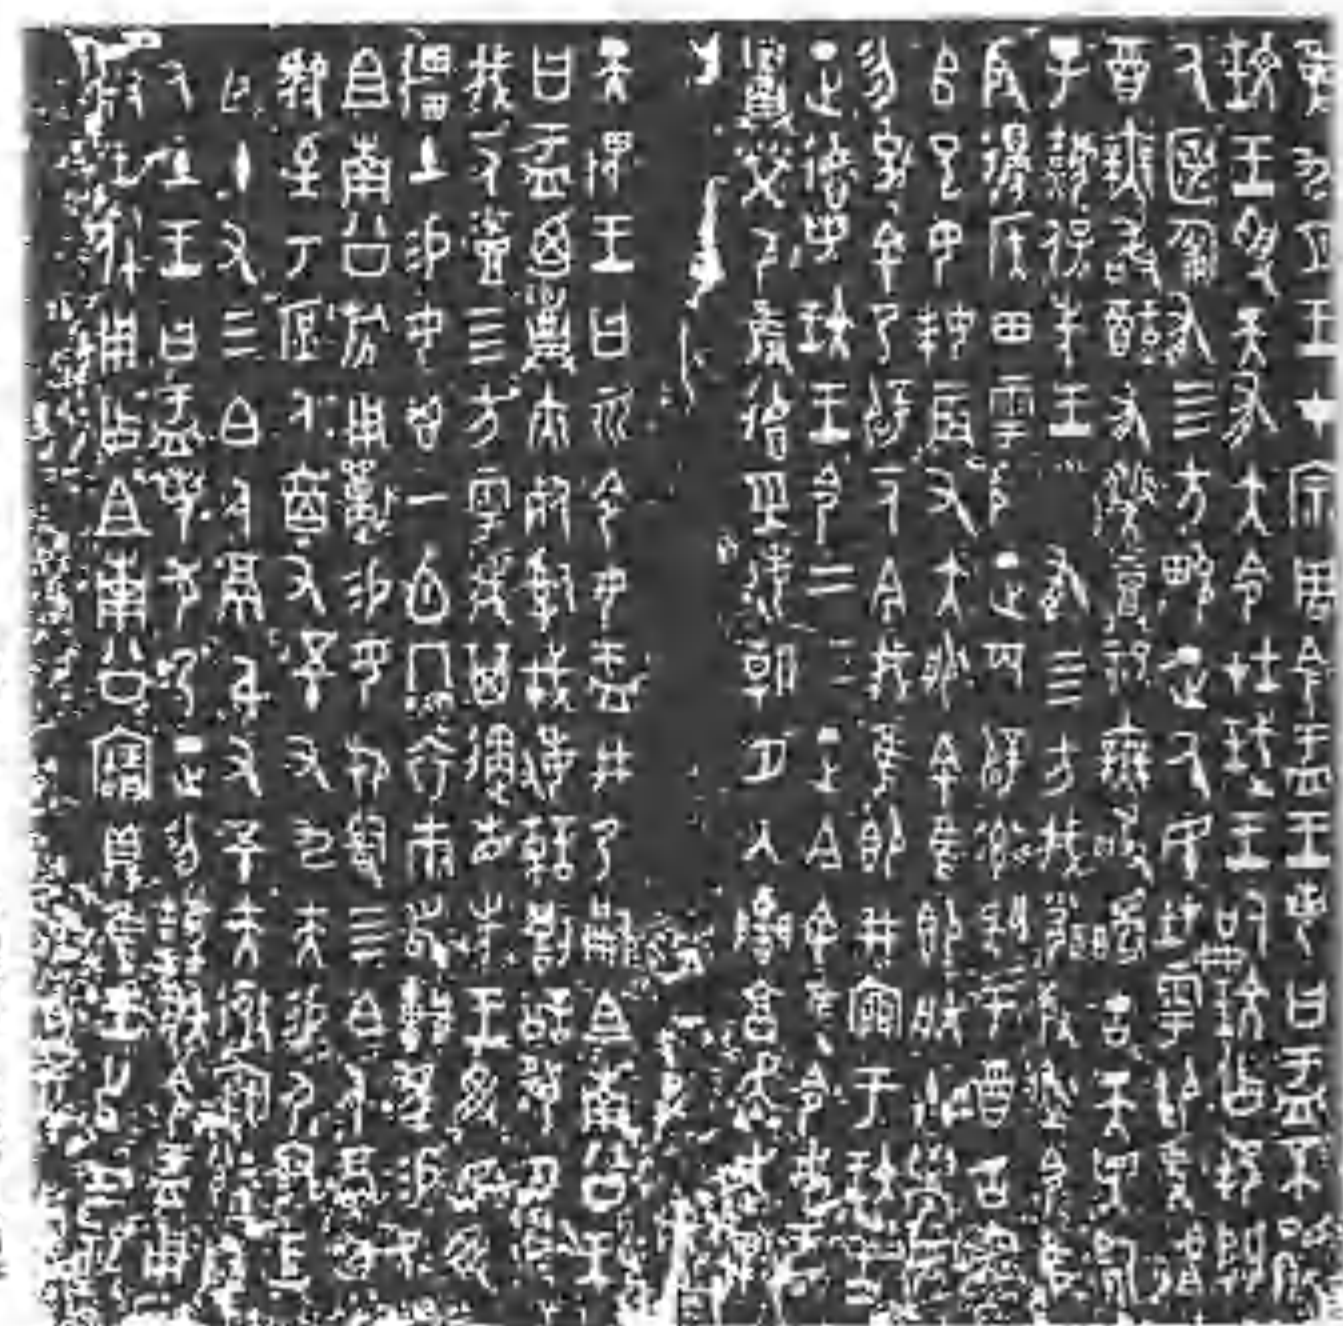 隹九月王才宗周令盂王若曰盂不顯
玟王受天有大令在珷王嗣玟乍邦闢
厥匿匍有四方畯正厥民在雩御事𠭯
酉無敢酖有髭烝祀無敢醻古天異臨
子灋保先王有四方我聞殷述令隹
殷邊侯田雩殷正百辟率肄于酉古喪
師已女妹辰又大服余隹即朕小學女
勿剋余乃辟一人今我隹即井㐭于玟王
正德若玟王令二三正今余隹令女盂
召榮敬雍德巠敏朝夕入讕享奔走畏
天畏王曰而令女盂井乃嗣且南公王
曰盂廼召夾死司戎敏諫罰訟夙夕召
我一人烝四方雩我其遹省先王受民受
疆土易女鬯一卣冂衣巿舄車馬易乃
且南公旂用狩易女邦司四白人鬲自
馭至于庶人六百又五十又九夫易尸司
王臣十又三白人鬲千又五十夫
自厥土王曰盂若敬乃正勿灋朕令盂
用對王休用乍且南公寶鼎隹王廿又三祀